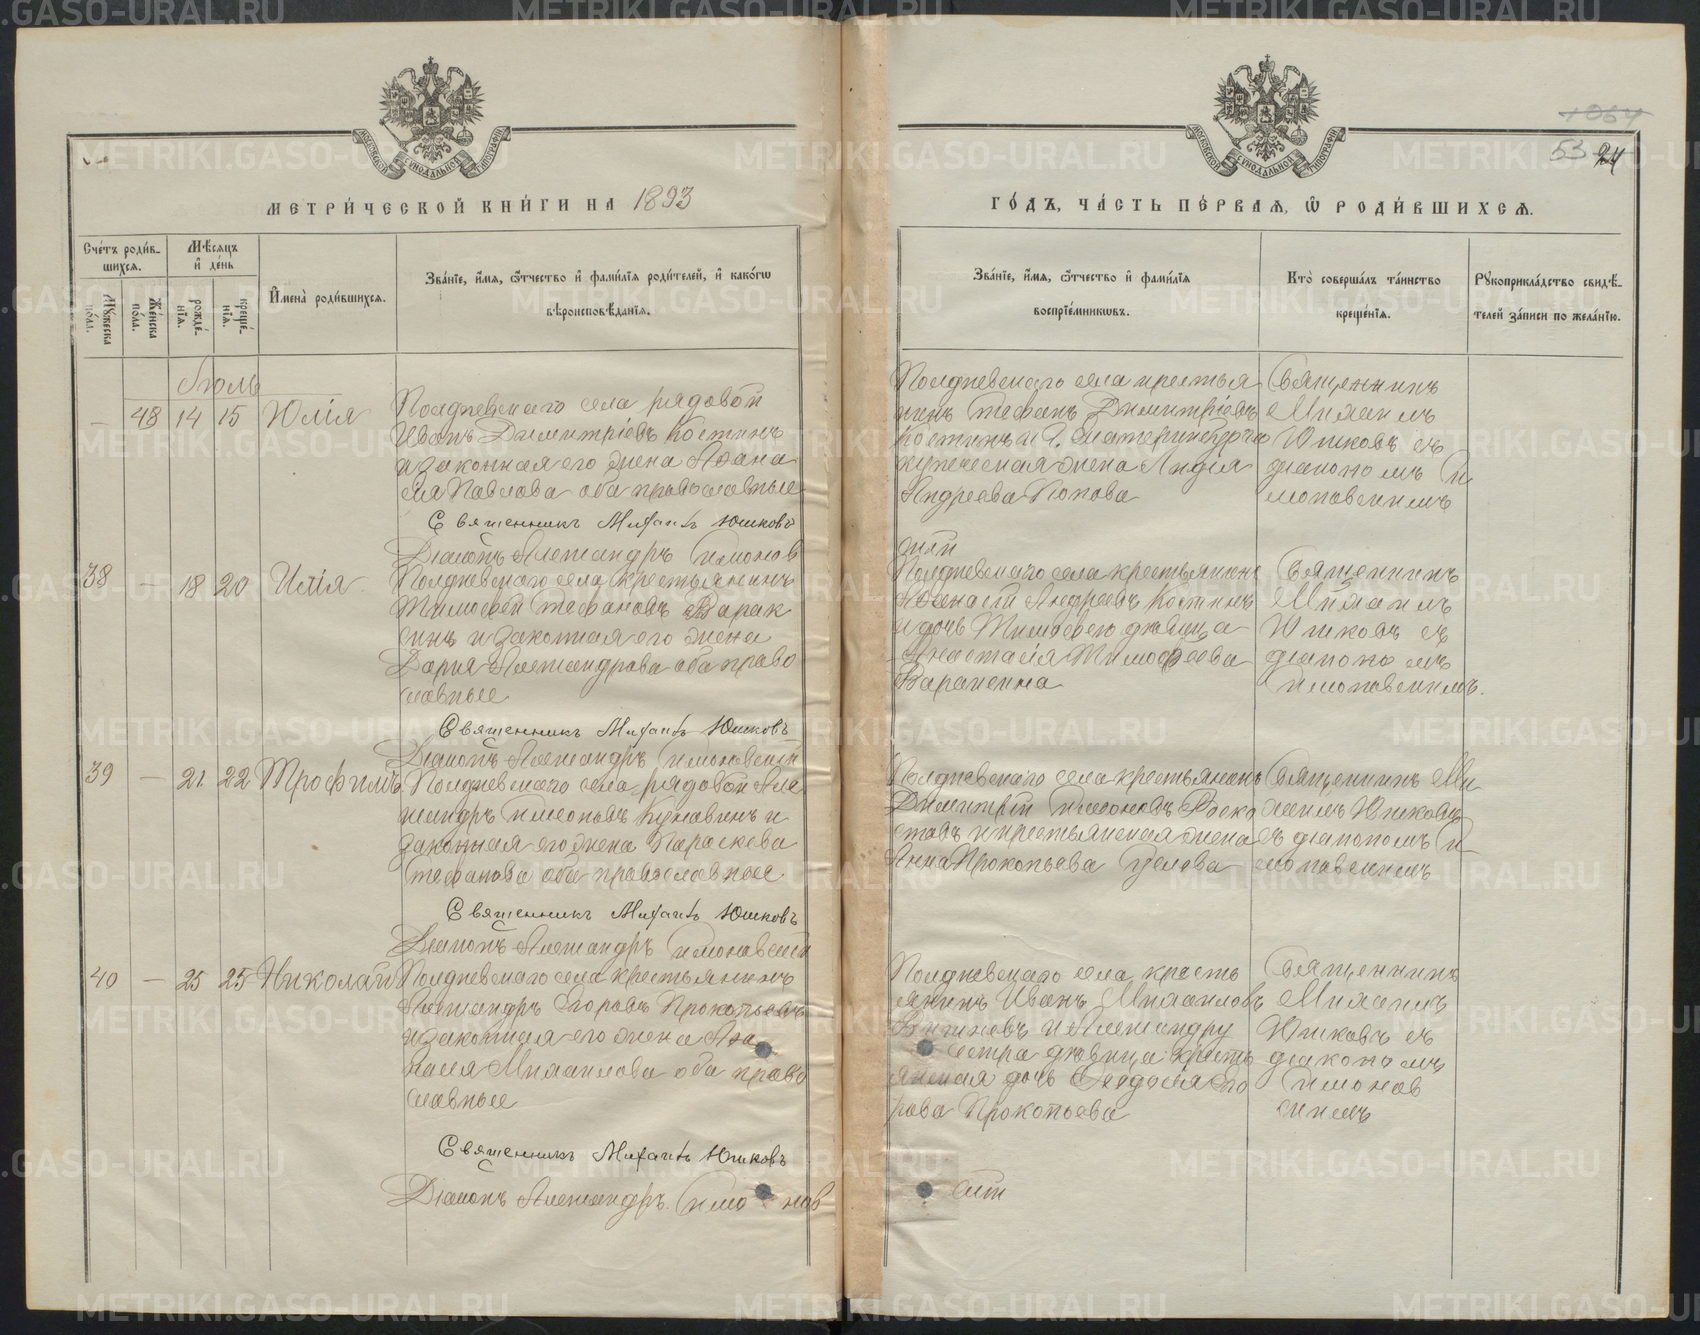 1064
53 24
МОСКОВСКОЙ СѴНОДАЛЬНОЙ ТИПОГРАФІИ
МОСКОВСКОЙ СѴНОДАЛЬНОЙ ТИПОГРАФІИ
МЕТРИ́ЧЕСКОЙ КНИ́ГИ НА 1893
ГО́ДЪ, ЧА́СТЬ ПЕ́РВАЯ, Ѡ РОДИ́ВШИХСЯ.
Сче́тъ роди́в-
шихся.
Мѣ́сяцъ
и҆ де́нь
Мꙋжеска
по́ла.
Же́нска
по́ла.
рожде́-
нїя.
креще́-
нїя.
И҆мена̀ роди́вшихся.
Зва́нїе, и҆́мя, ѻ҆́тчество и҆ фами́лїя роди́телей, и҆ како́гѡ
вѣроисповѣ́данїя.
Зва́нїе, и҆́мя, ѻ҆́тчество и҆ фами́лїя
воспрїе́мникѡвъ.
Кто̀ соверша́лъ та́инство
креще́нїя.
Рꙋкоприкла́дство свидѣ́-
телей за́писи по жела́нїю.
Іюль
— 48 14 15 Юлія
Полдневскаго села рядовой
Иванъ Димитріевъ Костинъ
и законная его жена Аѳана
сія Павлова оба православные
Священникъ Михаилъ Юшковъ
Діаконъ Александръ Симонов
Полдневскаго села крестья
нинъ Стефанъ Димитріевъ
Костинъ и г. Екатеринбурга
купеческая жена Лидія
Андреева Попова
скій
Священникъ
Михаилъ
Юшковъ съ
діакономъ Си
моновскимъ
38 — 18 20 Илія
Полдневскаго села крестьянинъ
Тимофей Стефановъ Варак
синъ и законная его жена
Дарія Александрова оба право
славные
Священникъ Михаилъ Юшковъ
Діаконъ Александръ Симоновскій
Полдневскаго села крестьянинъ
Аѳанасій Андреевъ Костинъ
и дочь Тимофею дѣвица
Анастасія Тимофеева
Вараксина
Священникъ
Михаилъ
Юшковъ съ
діакономъ
Симоновскимъ.
39 — 21 22 Трофимъ
Полдневскаго села рядовой Але
ксандръ Симеоновъ Кунавинъ и
законная его жена Параскева
Стефанова оба православные
Священникъ Михаилъ Юшковъ
Діаконъ Александръ Симоновскій
Полдневскаго села крестьянинъ
Димитрій Симеоновъ Роско
стовъ и крестьянская жена
Анна Прокопьева
Священникъ Ми
хаилъ Юшковъ
съ діакономъ Си
моновскимъ
40 — 25 25 Николай
Полдневскаго села крестьянинъ
Александръ Егоровъ Прокопьевъ
и законная его жена Аѳа
насія Михаилова оба право
славные
Священникъ Михаилъ Юшковъ
Діаконъ Александръ Симонов
Полдневскаго села кресть
янинъ Иванъ Михаиловъ
и Александру
сестра дѣвица кресть
янская дочь Ѳеодосія Его
рова Прокопьева
скій
Священникъ
Михаилъ
Юшковъ съ
діакономъ
Симонов
скимъ
METRIKI.GASO-URAL.RU